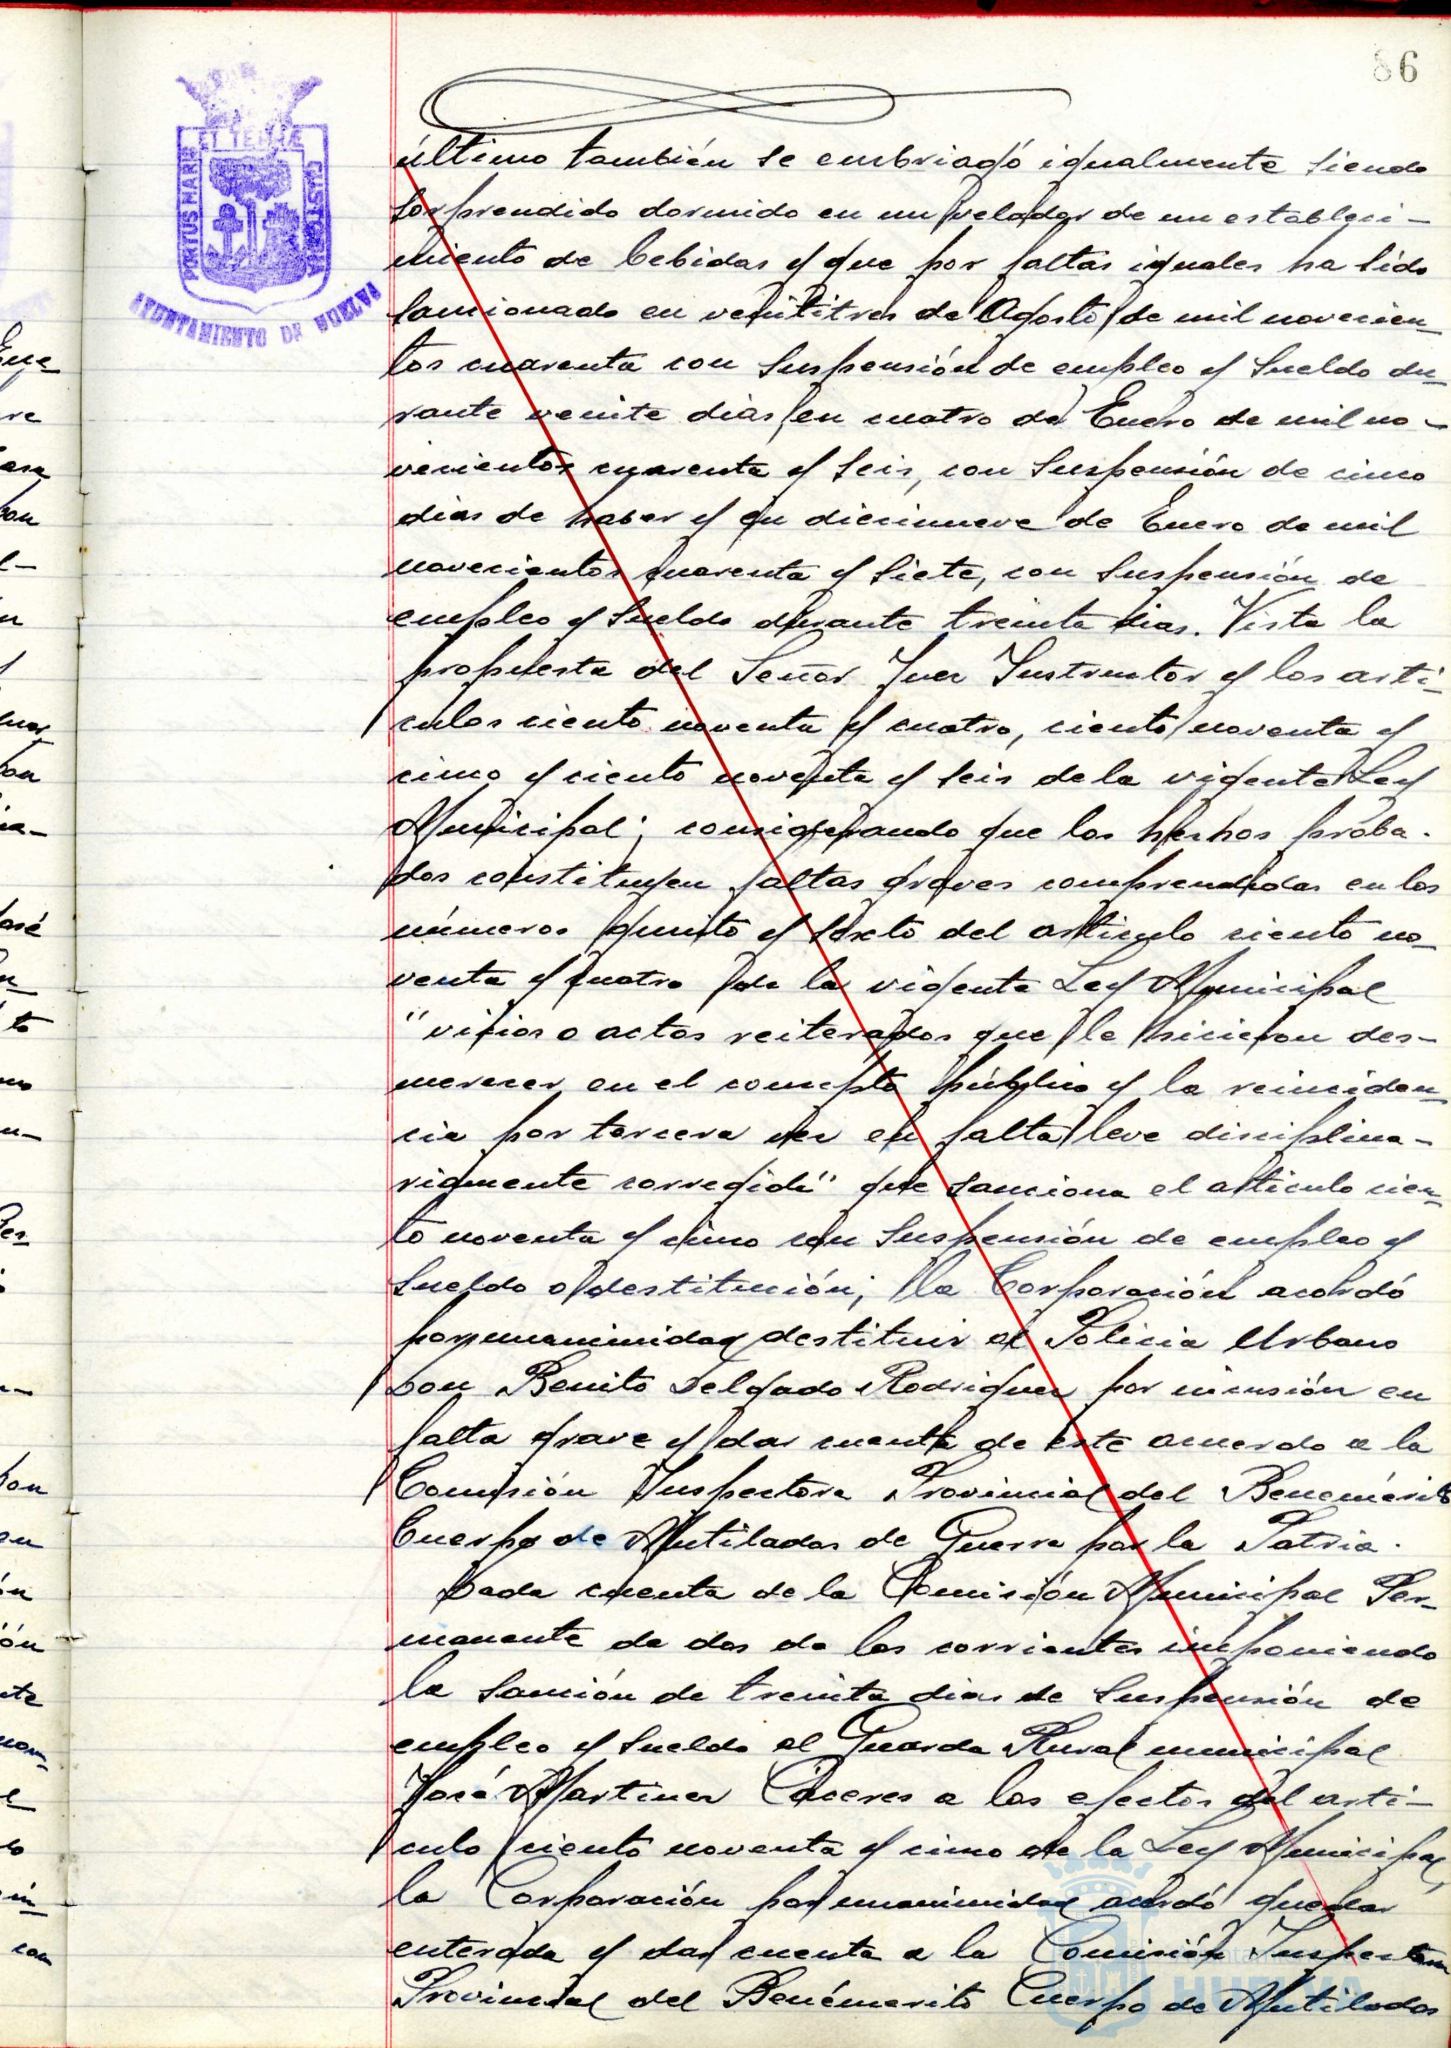 86
ET TERRÆ
PORTUS MARIS
CUSTODIA
AYUNTAMIENTO DE HUELVA
último también se embriagó igualmente siendo
sorprendido dormido en un velador de un estableci-
miento de bebidas y que por faltas iguales ha sido
sancionado en veintitres de Agosto de mil novecien-
tos cuarenta con suspensión de empleo y sueldo du-
rante veinte dias, en cuatro de Enero de mil no-
vecientos cuarenta y seis, con suspensión de cinco
dias de haber y en diecinueve de Enero de mil
novecientos cuarenta y siete, con suspensión de
empleo y sueldo durante treinta dias. Vista la
propuesta del Señor Juez Instructor y los artí-
culos ciento noventa y cuatro, ciento noventa y
cinco y ciento noventa y seis de la vigente Ley
Municipal; considerando que los hechos proba-
dos constituyen faltas graves comprendidas en los
números quinto y sexto del articulo ciento no-
venta y cuatro de la vigente Ley Municipal
"vicios o actos reiterados que le hicieron des-
merecer en el concepto público y la reinciden-
cia por tercera vez en falta leve disciplina-
riamente corregida" que sanciona el articulo cien-
to noventa y cinco con suspensión de empleo y
sueldo o destitución; la Corporación acordó
por unanimidad destituir al Policia Urbano
Don Benito Delgado Rodriguez por incusión en
falta grave y dar cuenta de este acuerdo a la
Comisión Inspectora Provincial del Benemérito
Cuerpo de Mutilados de Guerra por la Patria.
Dada cuenta de la Comisión Municipal Per-
manente de dos de los corrientes imponiendo
la sanción de treinta dias de suspensión de
empleo y sueldo al Guarda Rural municipal
José Martinez Cáceres a los efectos del arti-
culo ciento noventa y cinco de la Ley Municipal,
la Corporación por unanimidad acordó quedar
enterada y dar cuenta a la Comisión Inspectora
Provincial del Benémerito Cuerpo de Mutilados
HUELVA